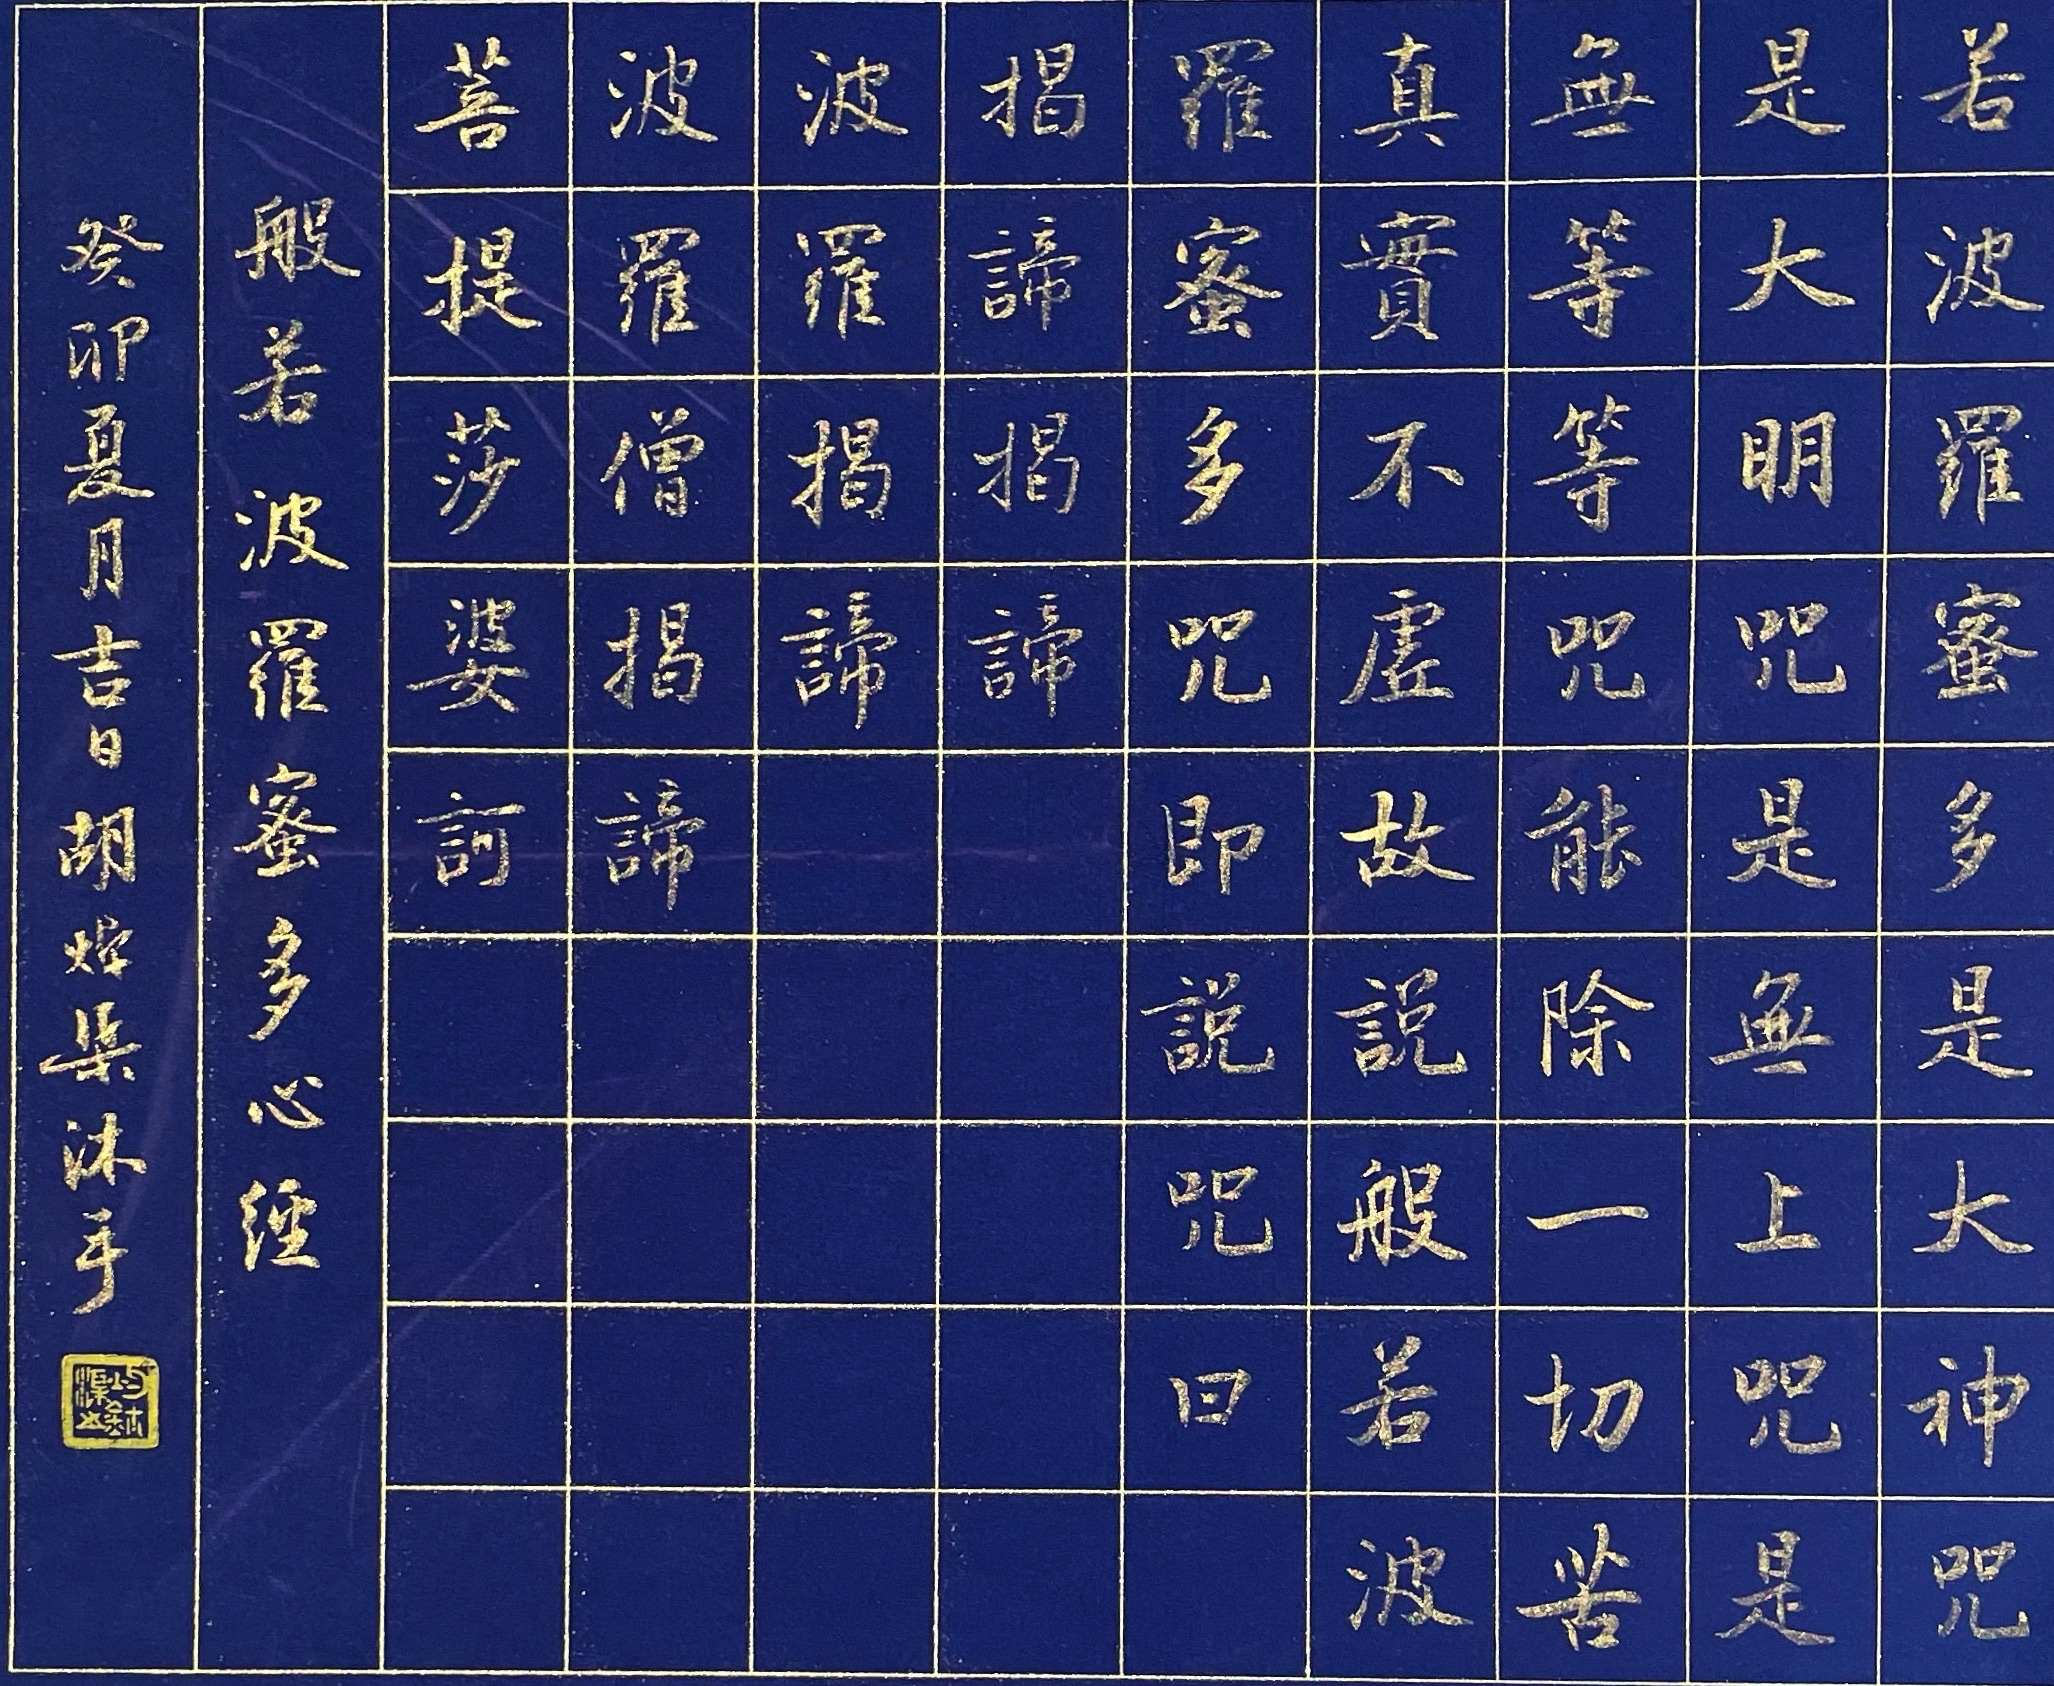 若波羅蜜多是大神咒
是大明咒是無上咒是
無等等咒能除一切苦
真實不虛故說般若波
羅蜜多咒即說咒曰
揭諦揭諦
波羅揭諦
波羅僧揭諦
菩提莎婆訶
般若波羅蜜多心經
癸卯夏月吉日胡 沐手